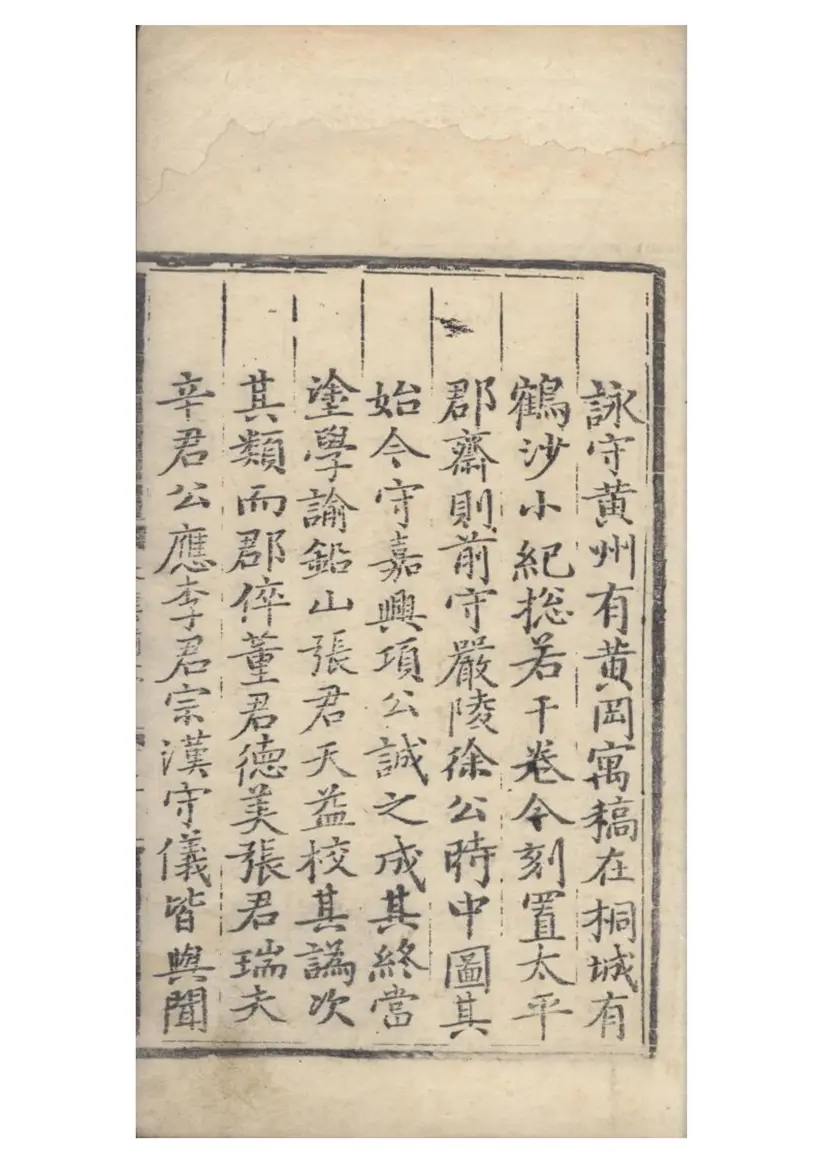 詠守黃州有黃岡寓稿在桐城有
鶴沙小紀捴若干卷今刻置太平
郡齋則前守嚴陵徐公時中圖其
始今守嘉興項公誠之成其終當
塗學諭鉛山張君天益校其譌次
其類而郡倅董君德美張君瑞夫
辛君公應李君宗漢守儀皆與聞